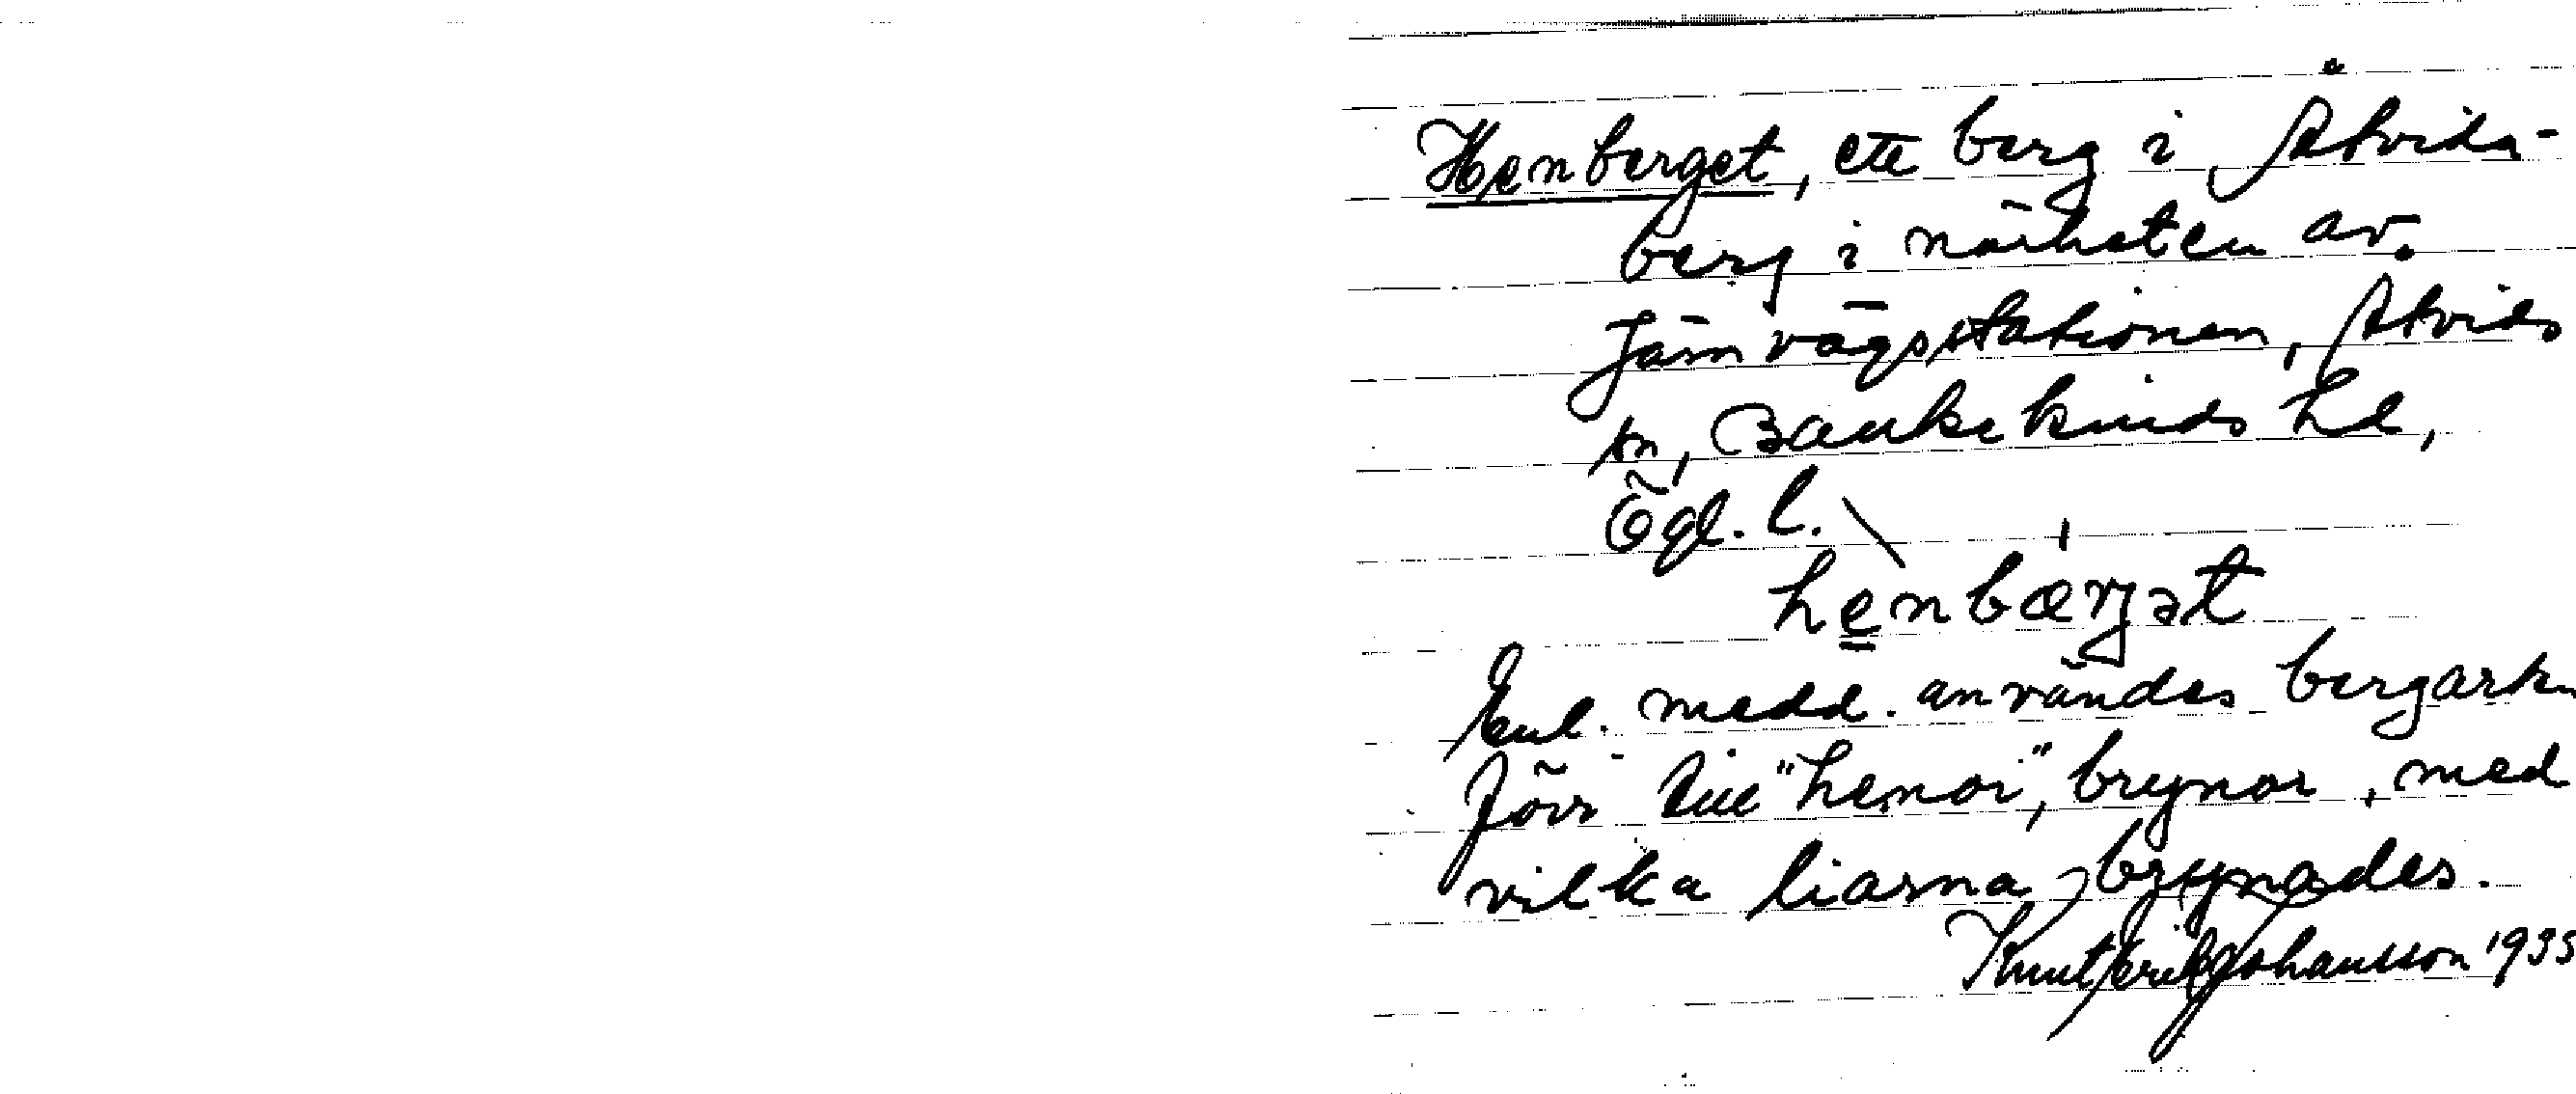 Henberget, ett berg i Åtvida-
berg i närheten av
Järnvägsstationen, Åtvids
sn, Bankekinds hd,
Ögl. l.
henbærjət
Enl. medd. användes bergarten
förr till "henor", brynor, med
vilka liarna brynades.
Knut Erik Johansson 1935